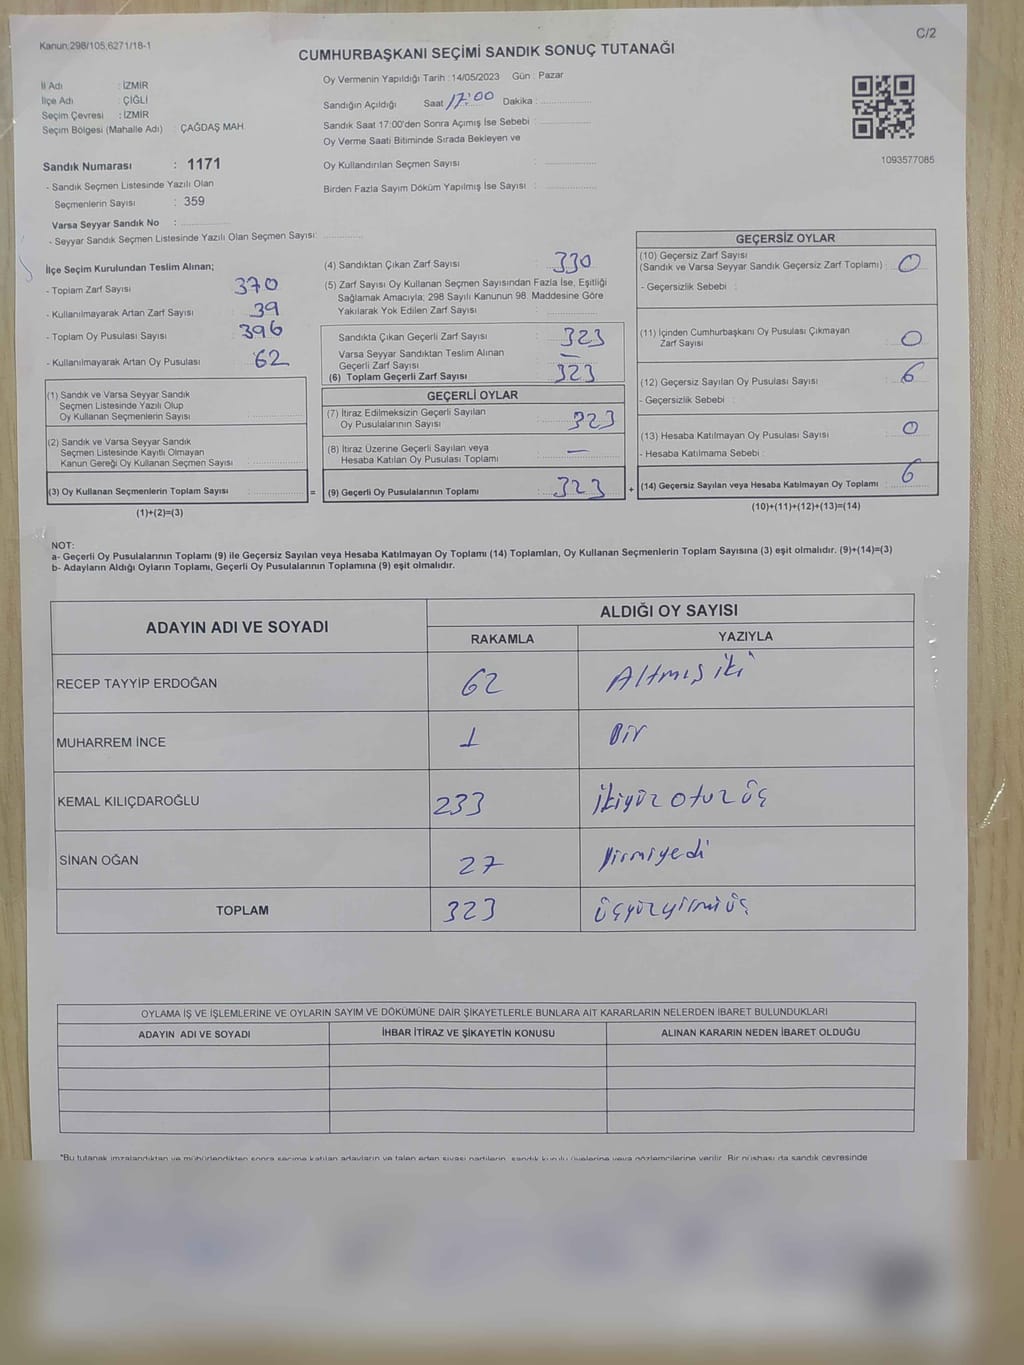 Kanun:298/105,6271/18-1
C/2
CUMHURBAŞKANI SEÇİMİ SANDIK SONUÇ TUTANAĞI
İl Adı : İZMİR
İlçe Adı : ÇİĞLİ
Seçim Çevresi : İZMİR
Seçim Bölgesi (Mahalle Adı) : ÇAĞDAŞ MAH.
Sandık Numarası : 1171
- Sandık Seçmen Listesinde Yazılı Olan
Seçmenlerin Sayısı : 359
Varsa Seyyar Sandık No :
- Seyyar Sandık Seçmen Listesinde Yazılı Olan Seçmen Sayısı:
Oy Vermenin Yapıldığı Tarih : 14/05/2023 Gün : Pazar
Sandığın Açıldığı Saat 17:00 Dakika :
Sandık Saat 17:00'den Sonra Açımış İse Sebebi :
Oy Verme Saati Bitiminde Sırada Bekleyen ve
Oy Kullandırılan Seçmen Sayısı :
Birden Fazla Sayım Döküm Yapılmış İse Sayısı :
1093577085
İlçe Seçim Kurulundan Teslim Alınan;
- Toplam Zarf Sayısı : 370
- Kullanılmayarak Artan Zarf Sayısı : 39
- Toplam Oy Pusulası Sayısı : 396
- Kullanılmayarak Artan Oy Pusulası : 62
(1) Sandık ve Varsa Seyyar Sandık
Seçmen Listesinde Yazılı Olup
Oy Kullanan Seçmenlerin Sayısı :
(2) Sandık ve Varsa Seyyar Sandık
Seçmen Listesinde Kayıtlı Olmayan
Kanun Gereği Oy Kullanan Seçmen Sayısı :
(3) Oy Kullanan Seçmenlerin Toplam Sayısı : =
(1)+(2)=(3)
(4) Sandıktan Çıkan Zarf Sayısı : 330
(5) Zarf Sayısı Oy Kullanan Seçmen Sayısından Fazla İse, Eşitliği
Sağlamak Amacıyla; 298 Sayılı Kanunun 98. Maddesine Göre
Yakılarak Yok Edilen Zarf Sayısı :
Sandıkta Çıkan Geçerli Zarf Sayısı : 323
Varsa Seyyar Sandıktan Teslim Alınan
Geçerli Zarf Sayısı : —
(6) Toplam Geçerli Zarf Sayısı : 323
GEÇERLİ OYLAR
(7) İtiraz Edilmeksizin Geçerli Sayılan
Oy Pusulalarının Sayısı : 323
(8) İtiraz Üzerine Geçerli Sayılan veya
Hesaba Katılan Oy Pusulası Toplamı : —
(9) Geçerli Oy Pusulalarının Toplamı : 323 +
GEÇERSİZ OYLAR
(10) Geçersiz Zarf Sayısı
(Sandık ve Varsa Seyyar Sandık Geçersiz Zarf Toplamı) : 0
- Geçersizlik Sebebi :
(11) İçinden Cumhurbaşkanı Oy Pusulası Çıkmayan
Zarf Sayısı : 0
(12) Geçersiz Sayılan Oy Pusulası Sayısı : 6
- Geçersizlik Sebebi :
(13) Hesaba Katılmayan Oy Pusulası Sayısı : 0
- Hesaba Katılmama Sebebi :
(14) Geçersiz Sayılan veya Hesaba Katılmayan Oy Toplamı : 6
(10)+(11)+(12)+(13)=(14)
NOT:
a- Geçerli Oy Pusulalarının Toplamı (9) ile Geçersiz Sayılan veya Hesaba Katılmayan Oy Toplamı (14) Toplamları, Oy Kullanan Seçmenlerin Toplam Sayısına (3) eşit olmalıdır. (9)+(14)=(3)
b- Adayların Aldığı Oyların Toplamı, Geçerli Oy Pusulalarının Toplamına (9) eşit olmalıdır.
ADAYIN ADI VE SOYADI
ALDIĞI OY SAYISI
RAKAMLA YAZIYLA
RECEP TAYYİP ERDOĞAN 62 Altmış iki
MUHARREM İNCE 1 Bir
KEMAL KILIÇDAROĞLU 233 ikiyüz otuz üç
SİNAN OĞAN 27 yirmiyedi
TOPLAM 323 üçyüzyirmi üç
OYLAMA İŞ VE İŞLEMLERİNE VE OYLARIN SAYIM VE DÖKÜMÜNE DAİR ŞİKAYETLERLE BUNLARA AİT KARARLARIN NELERDEN İBARET BULUNDUKLARI
ADAYIN ADI VE SOYADI İHBAR İTİRAZ VE ŞİKAYETİN KONUSU ALINAN KARARIN NEDEN İBARET OLDUĞU
*Bu tutanak imzalandıktan ve mühürlendikten sonra seçime katılan adayların ve talep eden siyasi partilerin, sandık kurulu üyelerine veya gözlemcilerine verilir. Bir nüshası da sandık çevresinde